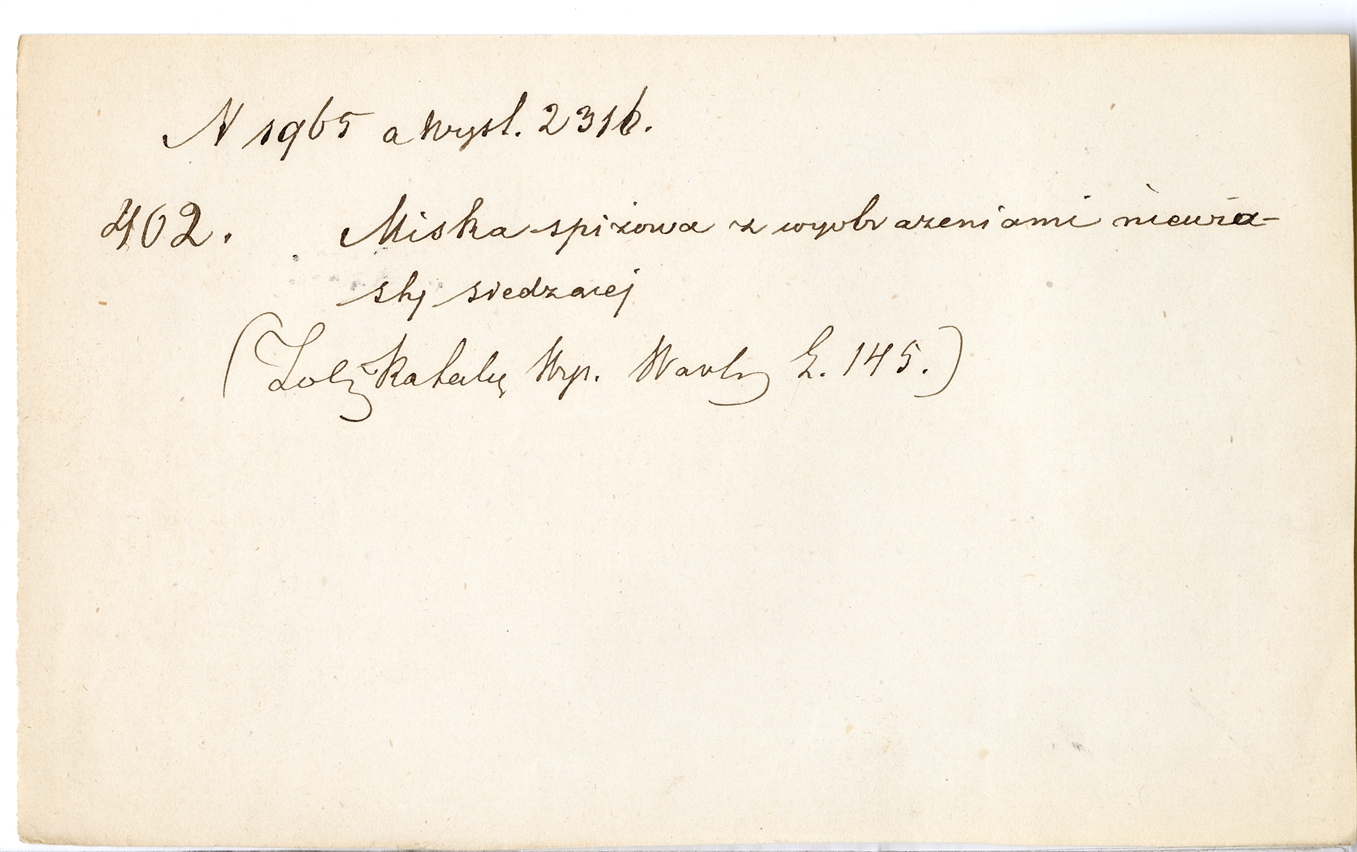 N 1965 a Wysł. 2316.
402. Miska spiżowa z wyobrażeniami niewia-
sty siedzącej
(Zob. Katalog Wyp. Warty L. 145.)